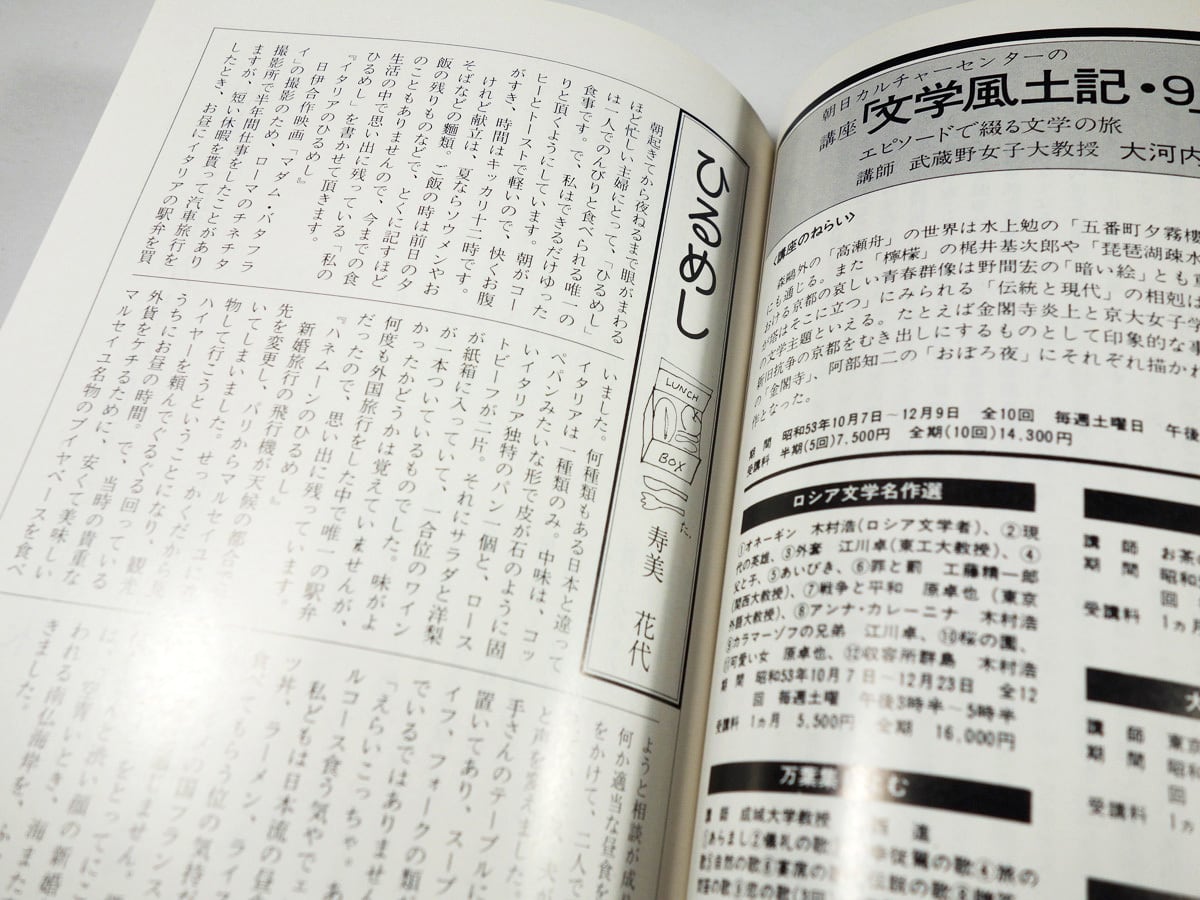 ひるめし
LUNCH
BOX
寿美 花代
朝起きてから夜ねるまで眼がまわる
ほど忙しい主婦にとって、「ひるめし」
は一人でのんびりと食べられる唯一の
食事です。で、私はできるだけゆった
りと頂くようにしています。朝がコー
ヒーとトーストで軽いので、快くお腹
がすき、時間はキッカリ十二時です。
けれど献立は、夏ならソウメンやお
そばなどの麵類。ご飯の時は前日の夕
飯の残りものなどで、とくに記すほど
のこともありませんので、今までの食
生活の中で思い出に残っている「私の
ひるめし」を書かせて頂きます。
『イタリアのひるめし』
日伊合作映画「マダム・バタフラ
イ」の撮影のため、ローマのチネチッタ
撮影所で半年間仕事をしたことがあり
ますが、短い休暇を貰って汽車旅行を
したとき、お昼にイタリアの駅弁を買
いました。何種類もある日本と違って
イタリアは一種類のみ。中味は、コッ
ペパンみたいな形で皮が石のように固
いイタリア独特のパン一個と、ロース
トビーフが二片。それにサラダと洋梨
が紙箱に入っていて、一合位のワイン
が一本ついているものでした。味がよ
かったかどうかは覚えていませんが、
何度も外国旅行をした中で唯一の駅弁
だったので、思い出に残っています。
『ハネムーンのひるめし』
新婚旅行の飛行機が天候の都合で行
先を変更し、パリからマルセイユに
いてしまいました。せっかくだから見
物して行こうということになり、観光
ハイヤーを頼んでぐるぐる回っている
うちにお昼の時間。で、当時の貴重な
外貨をケチるために、安くて美味しい
マルセイユ名物のブイヤベースを食べ
ようと相談が成
何か適当な昼食を
をかけて、二人で
と声を変えました。
手さんのテーブルに
置いてあり、スープ
イフ、フォークの類が
でいるではありません
「えらいこっちゃ。あ
ルコース食う気やでェ
私どもは日本流の昼食
ツ丼、ラーメン、ライス
食べてもらう位の気持だ
の国フランス
ません。
んと渋い顔の新婚
空青いとき、海また
われる南仏海岸を、
きました。
朝日カルチャーセンターの
講座 「文学風土記・9
エピソードで綴る文学の旅
講師 武蔵野女子大教授 大河内
〈講座のねらい〉
森鷗外の「高瀬舟」の世界は水上勉の「五番町夕霧楼
にも通じる。また「檸檬」の梶井基次郎や「琵琶湖疎水
おける京都の哀しい青春群像は野間宏の「暗い絵」とも重
が塔はそこに立つ」にみられる「伝統と現代」の相剋は
の文学主題といえる。たとえば金閣寺炎上と京大女子学
新旧抗争の京都をむき出しにするものとして印象的な事
の「金閣寺」、阿部知二の「おぼろ夜」にそれぞれ描かれ
作となった。
期 間 昭和53年10月7日～12月9日 全10回 毎週土曜日 午後
受講料 半期(5回)7,500円 全期(10回)14,300円
ロシア文学名作選
①オネーギン 木村浩(ロシア文学者)、②現
代の英雄、③外套 江川卓(東工大教授)、④
父と子、⑤あいびき、⑥罪と罰 工藤精一郎
(関西大教授)、⑦戦争と平和 原卓也(東京
外語大教授)、⑧アンナ・カレーニナ 木村浩
⑨カラマーゾフの兄弟 江川卓、⑩桜の園、
⑪可愛い女 原卓也、⑫収容所群島 木村浩
期 間 昭和53年10月7日～12月23日 全12
回 毎週土曜 午後3時半～5時半
受講料 1ヵ月 5,500円 全期 16,000円
万葉集 む
講 師 成城大学教授 西 進
①あらまし②儀礼の歌
講 師 お茶の
期 間 昭和
回
受講料 1ヵ月
講 師 東京
期 間 昭和
回
受講料 1ヵ